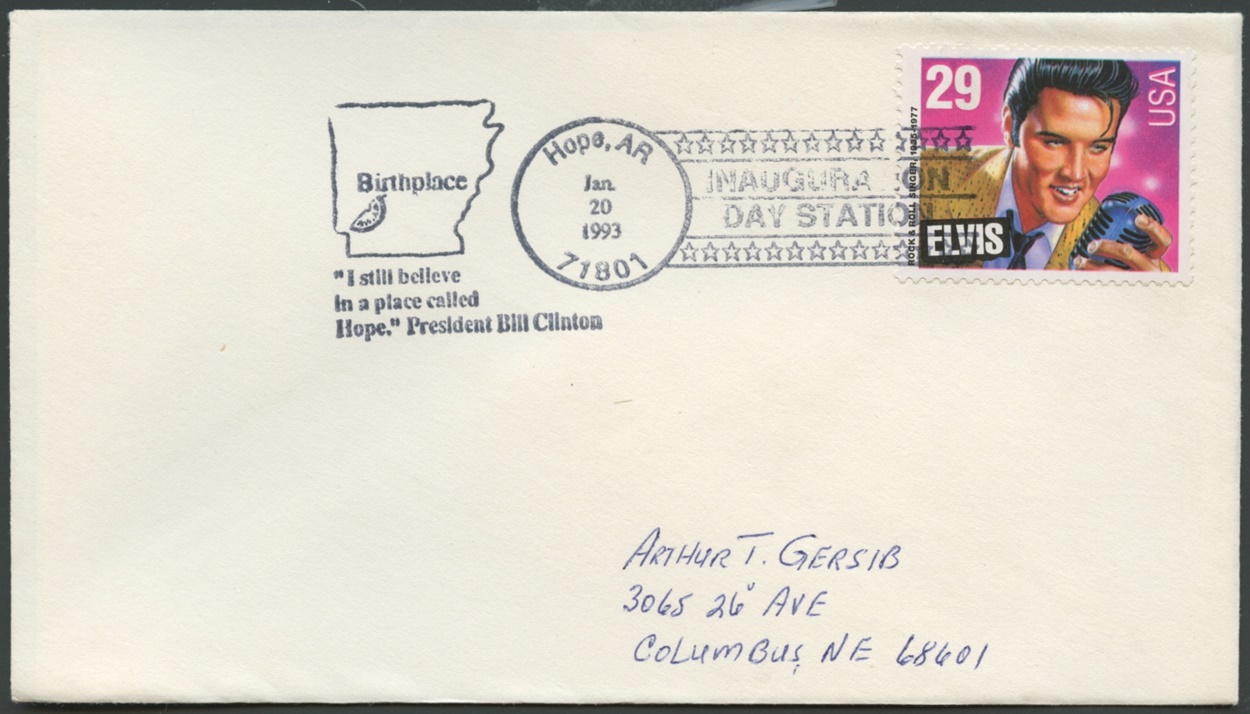 Birthplace
"I still believe
in a place called
Hope." President Bill Clinton
Hope, AR
Jan.
20
1993
71801
INAUGURATION
DAY STATION
29
USA
ROCK & ROLL SINGER, 1935-1977
ELVIS
ARTHUR T. GERSIB
3065 26" AVE
COLUMBUS, NE 68601